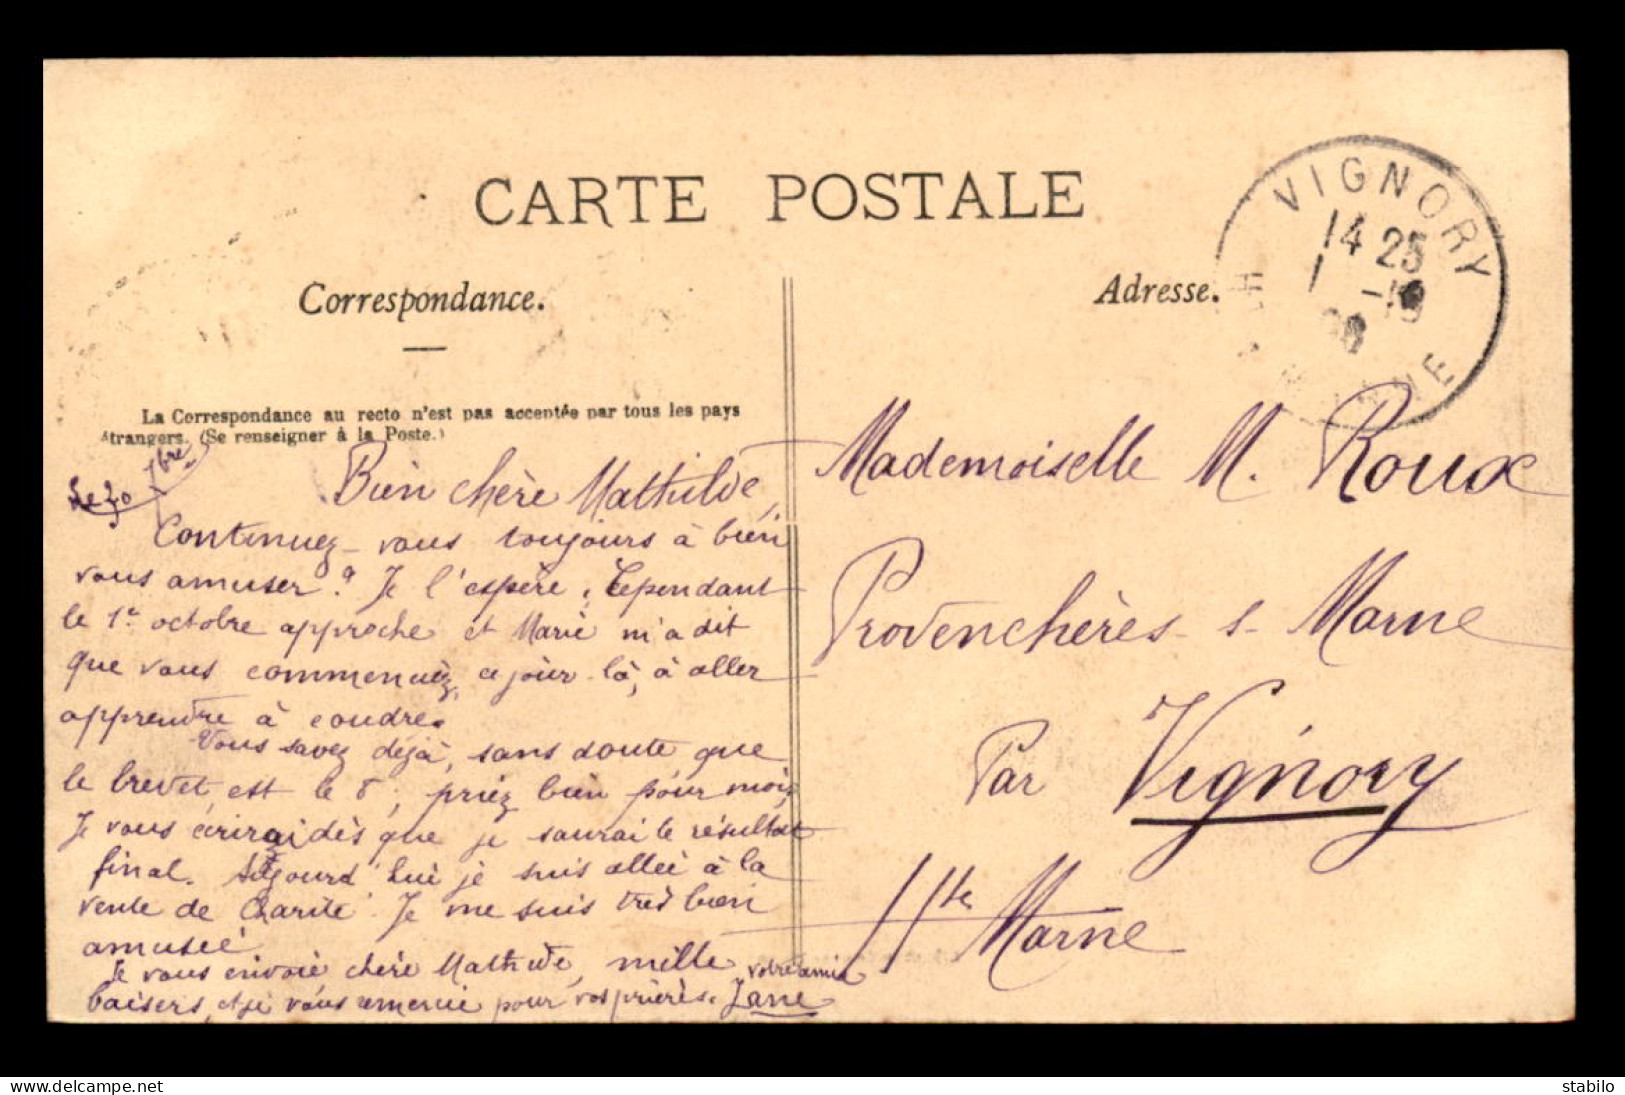 CARTE POSTALE
Correspondance.
Adresse.
VIGNORY
14 25
1 -10
MARNE
La Correspondance au recto n'est pas acceptée par tous les pays
étrangers. (Se renseigner à la Poste.)
Le 30 7bre
Bien chère Mathilde,
Continuez-vous toujours à bien
vous amuser? Je l'espère. Cependant
le 1er octobre approche et Marie m'a dit
que vous commenciez, ce jour-là, à aller
apprendre à coudre.
Vous savez déjà, sans doute que
le brevet est le 8; priez bien pour moi,
Je vous écrirai dès que je saurai le résultat
final. Aujourd'hui je suis allée à la
vente de Charité. Je me suis très bien
amusée
Je vous envoie chère Mathilde, mille
baisers, et je vous remercie pour vos prières. votre amie
Jane
Mademoiselle M. Roux
Provenchères-s-Marne
Par Vignory
Hte Marne
delcampe.net
stabilo